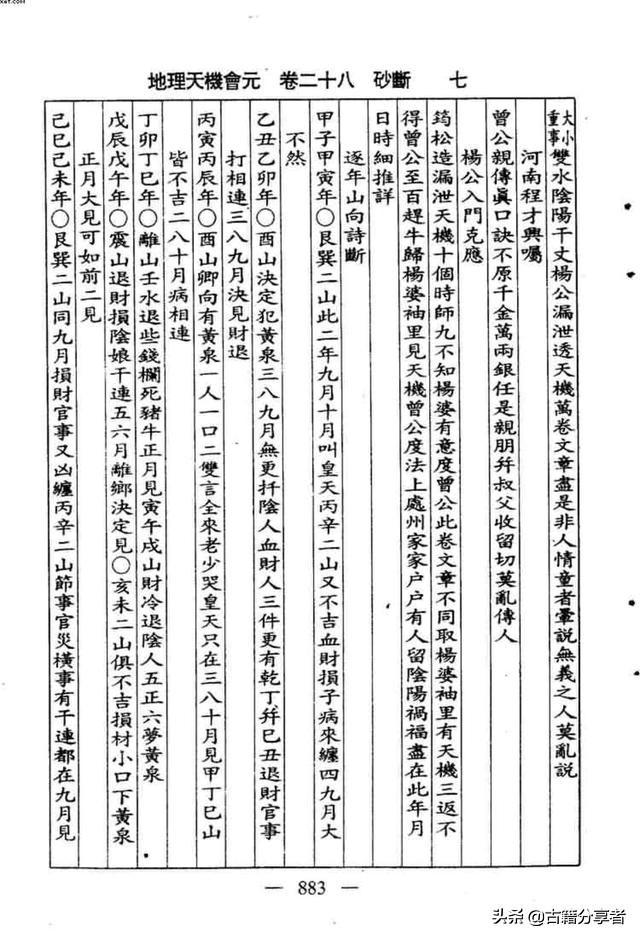 xet.com
地理天機會元　卷二十八　砂斷　七
大小重事雙水陰陽干丈楊公漏泄透天機萬卷文章盡是非人情童者暈説無義之人莫亂説
河南程才興囑
曾公親傳眞口訣不原千金萬兩銀任是親朋并叔父收留切莫亂傳人
楊公入門克應
筠松造漏泄天機十個時師九不知楊婆有意度曾公此卷文章不同取楊婆袖里有天機三返不
得曾公至百趕牛歸楊婆袖里見天機曾公度法上處州家家户户有人留陰陽禍福盡在此年月
日時細推詳
逐年山向詩斷
甲子甲寅年〇艮巽二山此二年九月十月叫皇天丙辛二山又不吉血財損子病來纏四九月大
不然
乙丑乙卯年〇酉山決定犯黃泉三八九月無更扦陰人血財人三件更有乾丁并巳丑退財官事
打相連三八九月決見財退
丙寅丙辰年〇酉山卿向有黃泉一人一口二雙言全來老少哭皇天只在三八十月見甲丁巳山
皆不吉二八十月病相連
丁卯丁巳年〇離山壬水退些錢欄死豬牛正月見寅午戌山財冷退陰人五正六夢黃泉
戊辰戊午年〇震山退財損陰娘干連五六月離鄉決定見〇亥未二山俱不吉損材小口下黃泉
正月大見可如前二見
己巳己未年〇艮巽二山同九月損財官事又凶纏丙辛二山節事官災橫事有干連都在九月見
— 883 —
头条 @古籍分享者